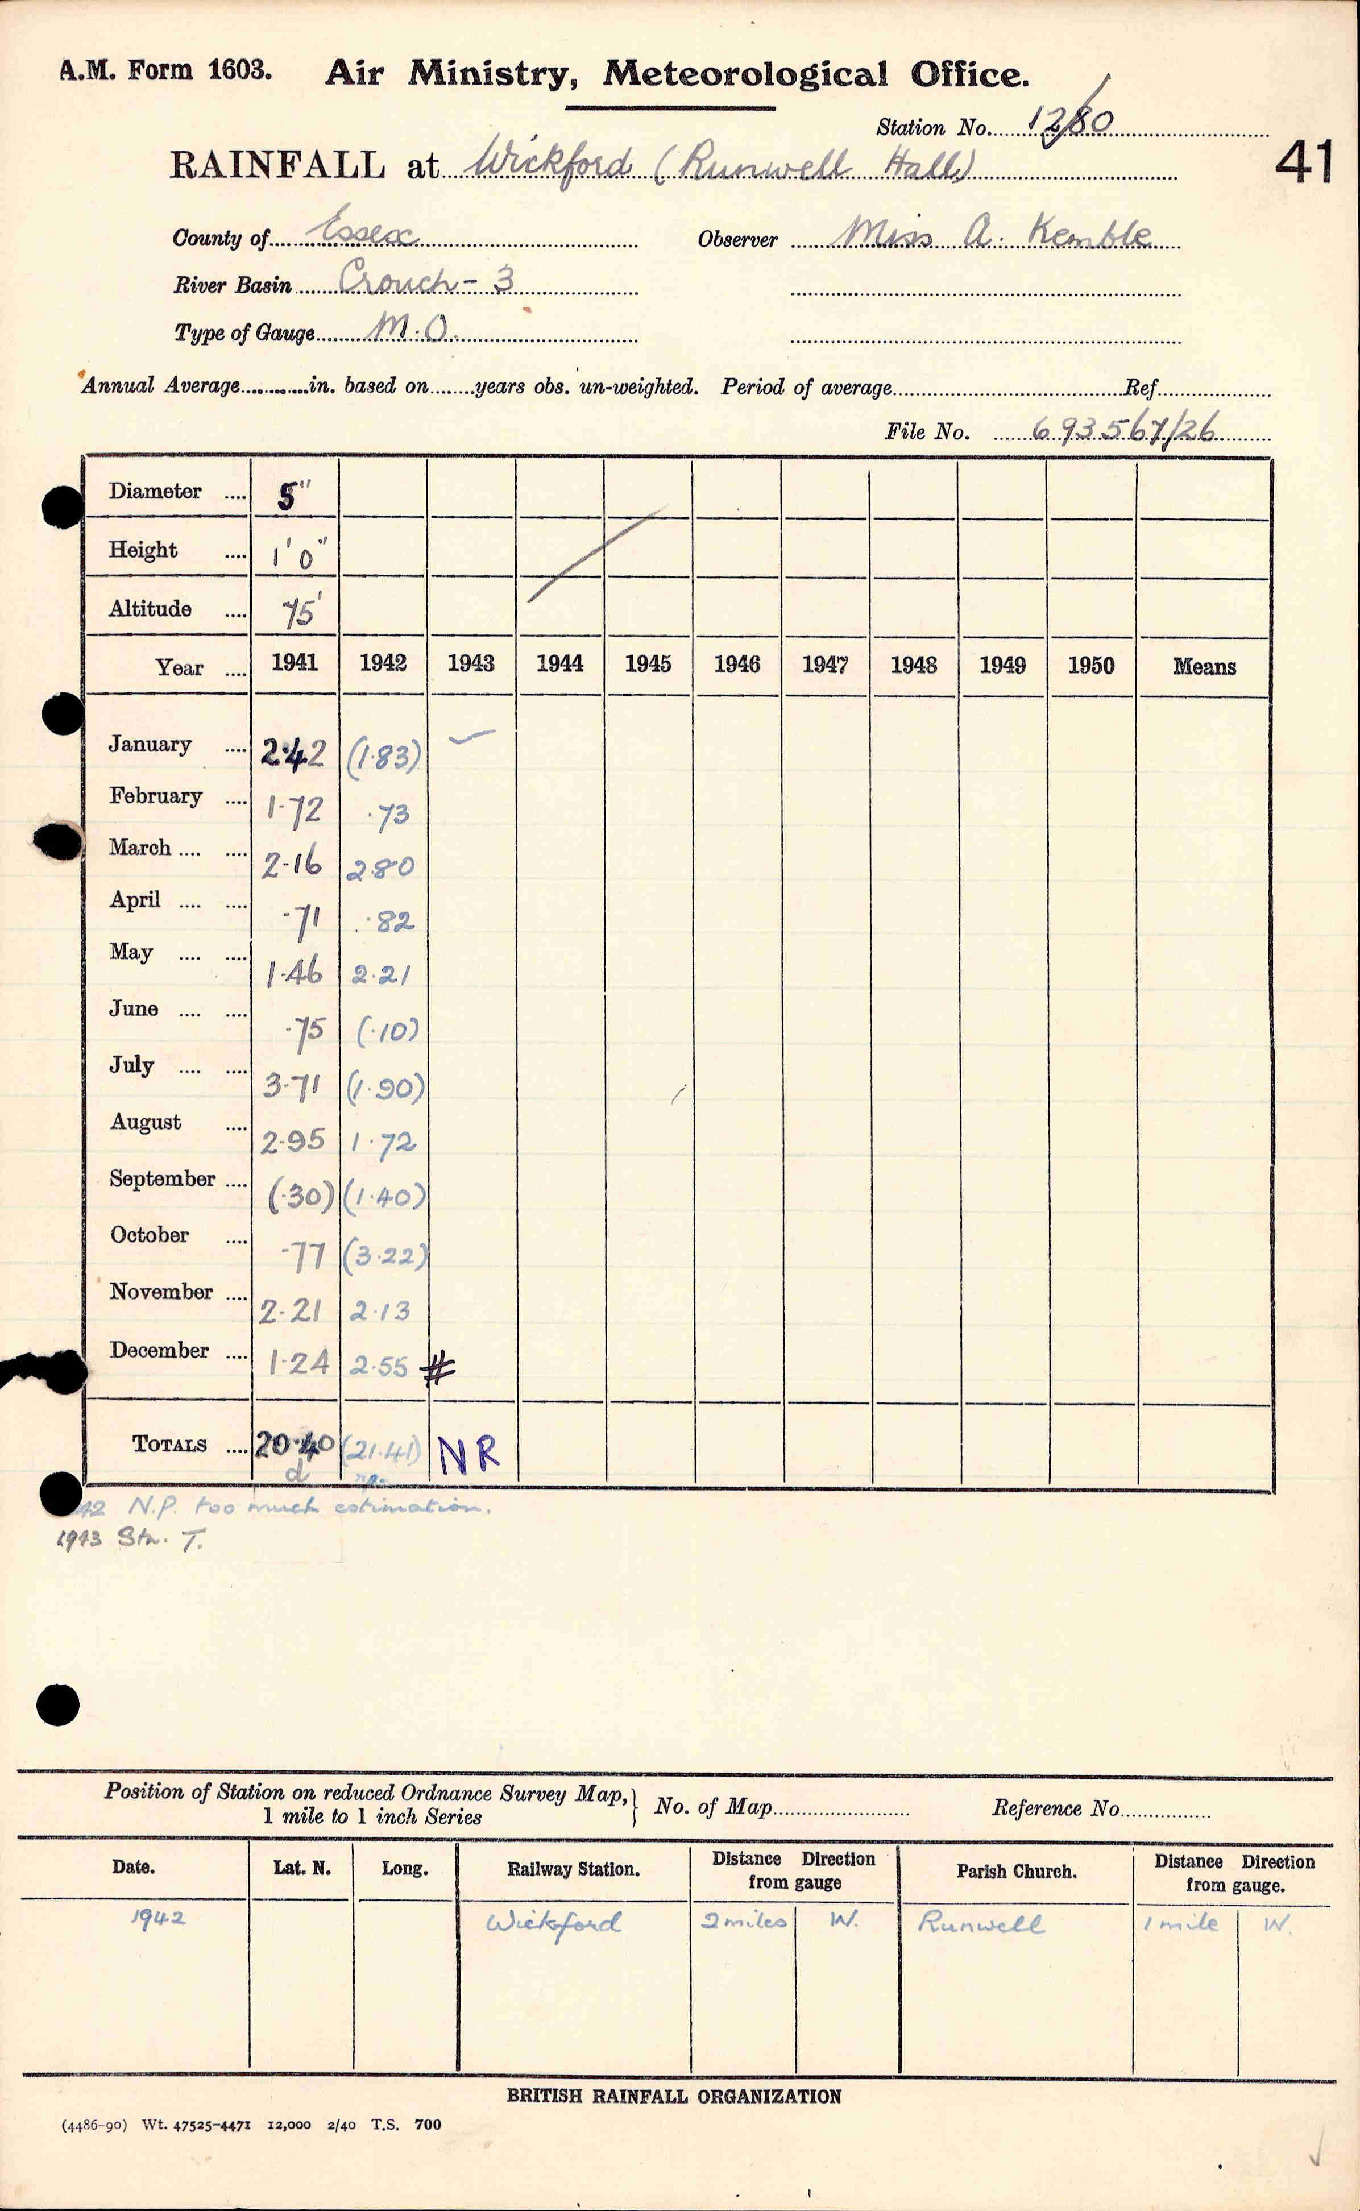 A.M. Form 1603. Air Ministry, Meteorological Office.
Station No. 12/80
RAINFALL at Wickford (Runwell Hall) 41
County of Essex Observer Miss A. Kemble
River Basin Crouch-3
Type of Gauge M.O.
Annual Average in. based on years obs. un-weighted. Period of average Ref
File No. 693567/26
Diameter 5"
Height 1'0"
Altitude 75'
Year 1941 1942 1943 1944 1945 1946 1947 1948 1949 1950 Means
January 2.42 (1.83)
February 1.72 .73
March 2.16 2.80
April .71 .82
May 1.46 2.21
June .75 (.10)
July 3.71 (1.90)
August 2.95 1.72
September (.30) (1.40)
October .77 (3.22)
November 2.21 2.13
December 1.24 2.55 #
TOTALS 20.40 (21.41) NR
d n.p.
42 N.P. too much estimation.
1943 Stn. T.
Position of Station on reduced Ordnance Survey Map, 1 mile to 1 inch Series } No. of Map Reference No
Date. Lat. N. Long. Railway Station. Distance Direction from gauge Parish Church. Distance Direction from gauge.
1942 Wickford 2 miles W. Runwell 1 mile W.
BRITISH RAINFALL ORGANIZATION
(4486-90) Wt. 47525-4471 12,000 2/40 T.S. 700